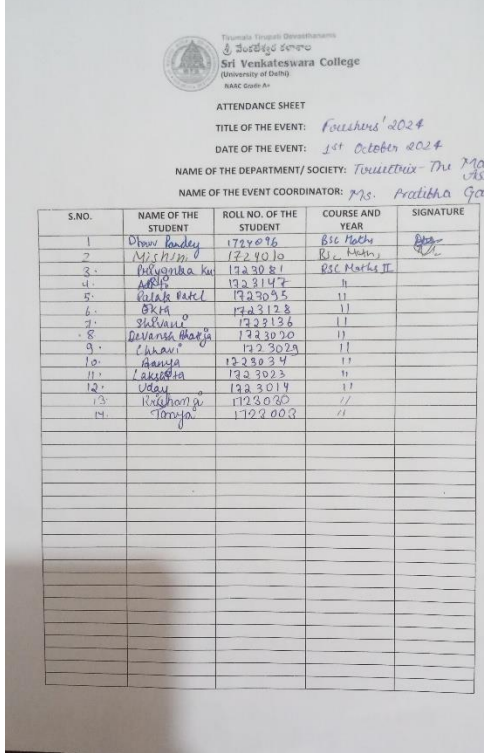 Tirumala Tirupati Devasthanams
శ్రీ వెంకటేశ్వర కళాశాల
Sri Venkateswara College
(University of Delhi)
NAAC Grade A+
ATTENDANCE SHEET
TITLE OF THE EVENT: Freshers' 2024
DATE OF THE EVENT: 1st October 2024
NAME OF THE DEPARTMENT/ SOCIETY: The
NAME OF THE EVENT COORDINATOR: Ms. Pratibha
S.NO. NAME OF THE STUDENT ROLL NO. OF THE STUDENT COURSE AND YEAR SIGNATURE
1 Dhruv Pandey 1724096 BSc Maths
2 Mishini 1724010 BSc Maths
3. Priyanka Ku 1723081 BSC Maths II
4. 1723147 11
5. Palak Patel 1723095 11
6. 1723128 11
7. Shivani 1723136 11
8. Devansh 1723020 11
9. Chhavi 1723029 11
10. Aanya 1723034 11
11. Lakshita 1723023 11
12. Uday 1723014 11
13. 1723030 11
14. Tanya 1723003 11